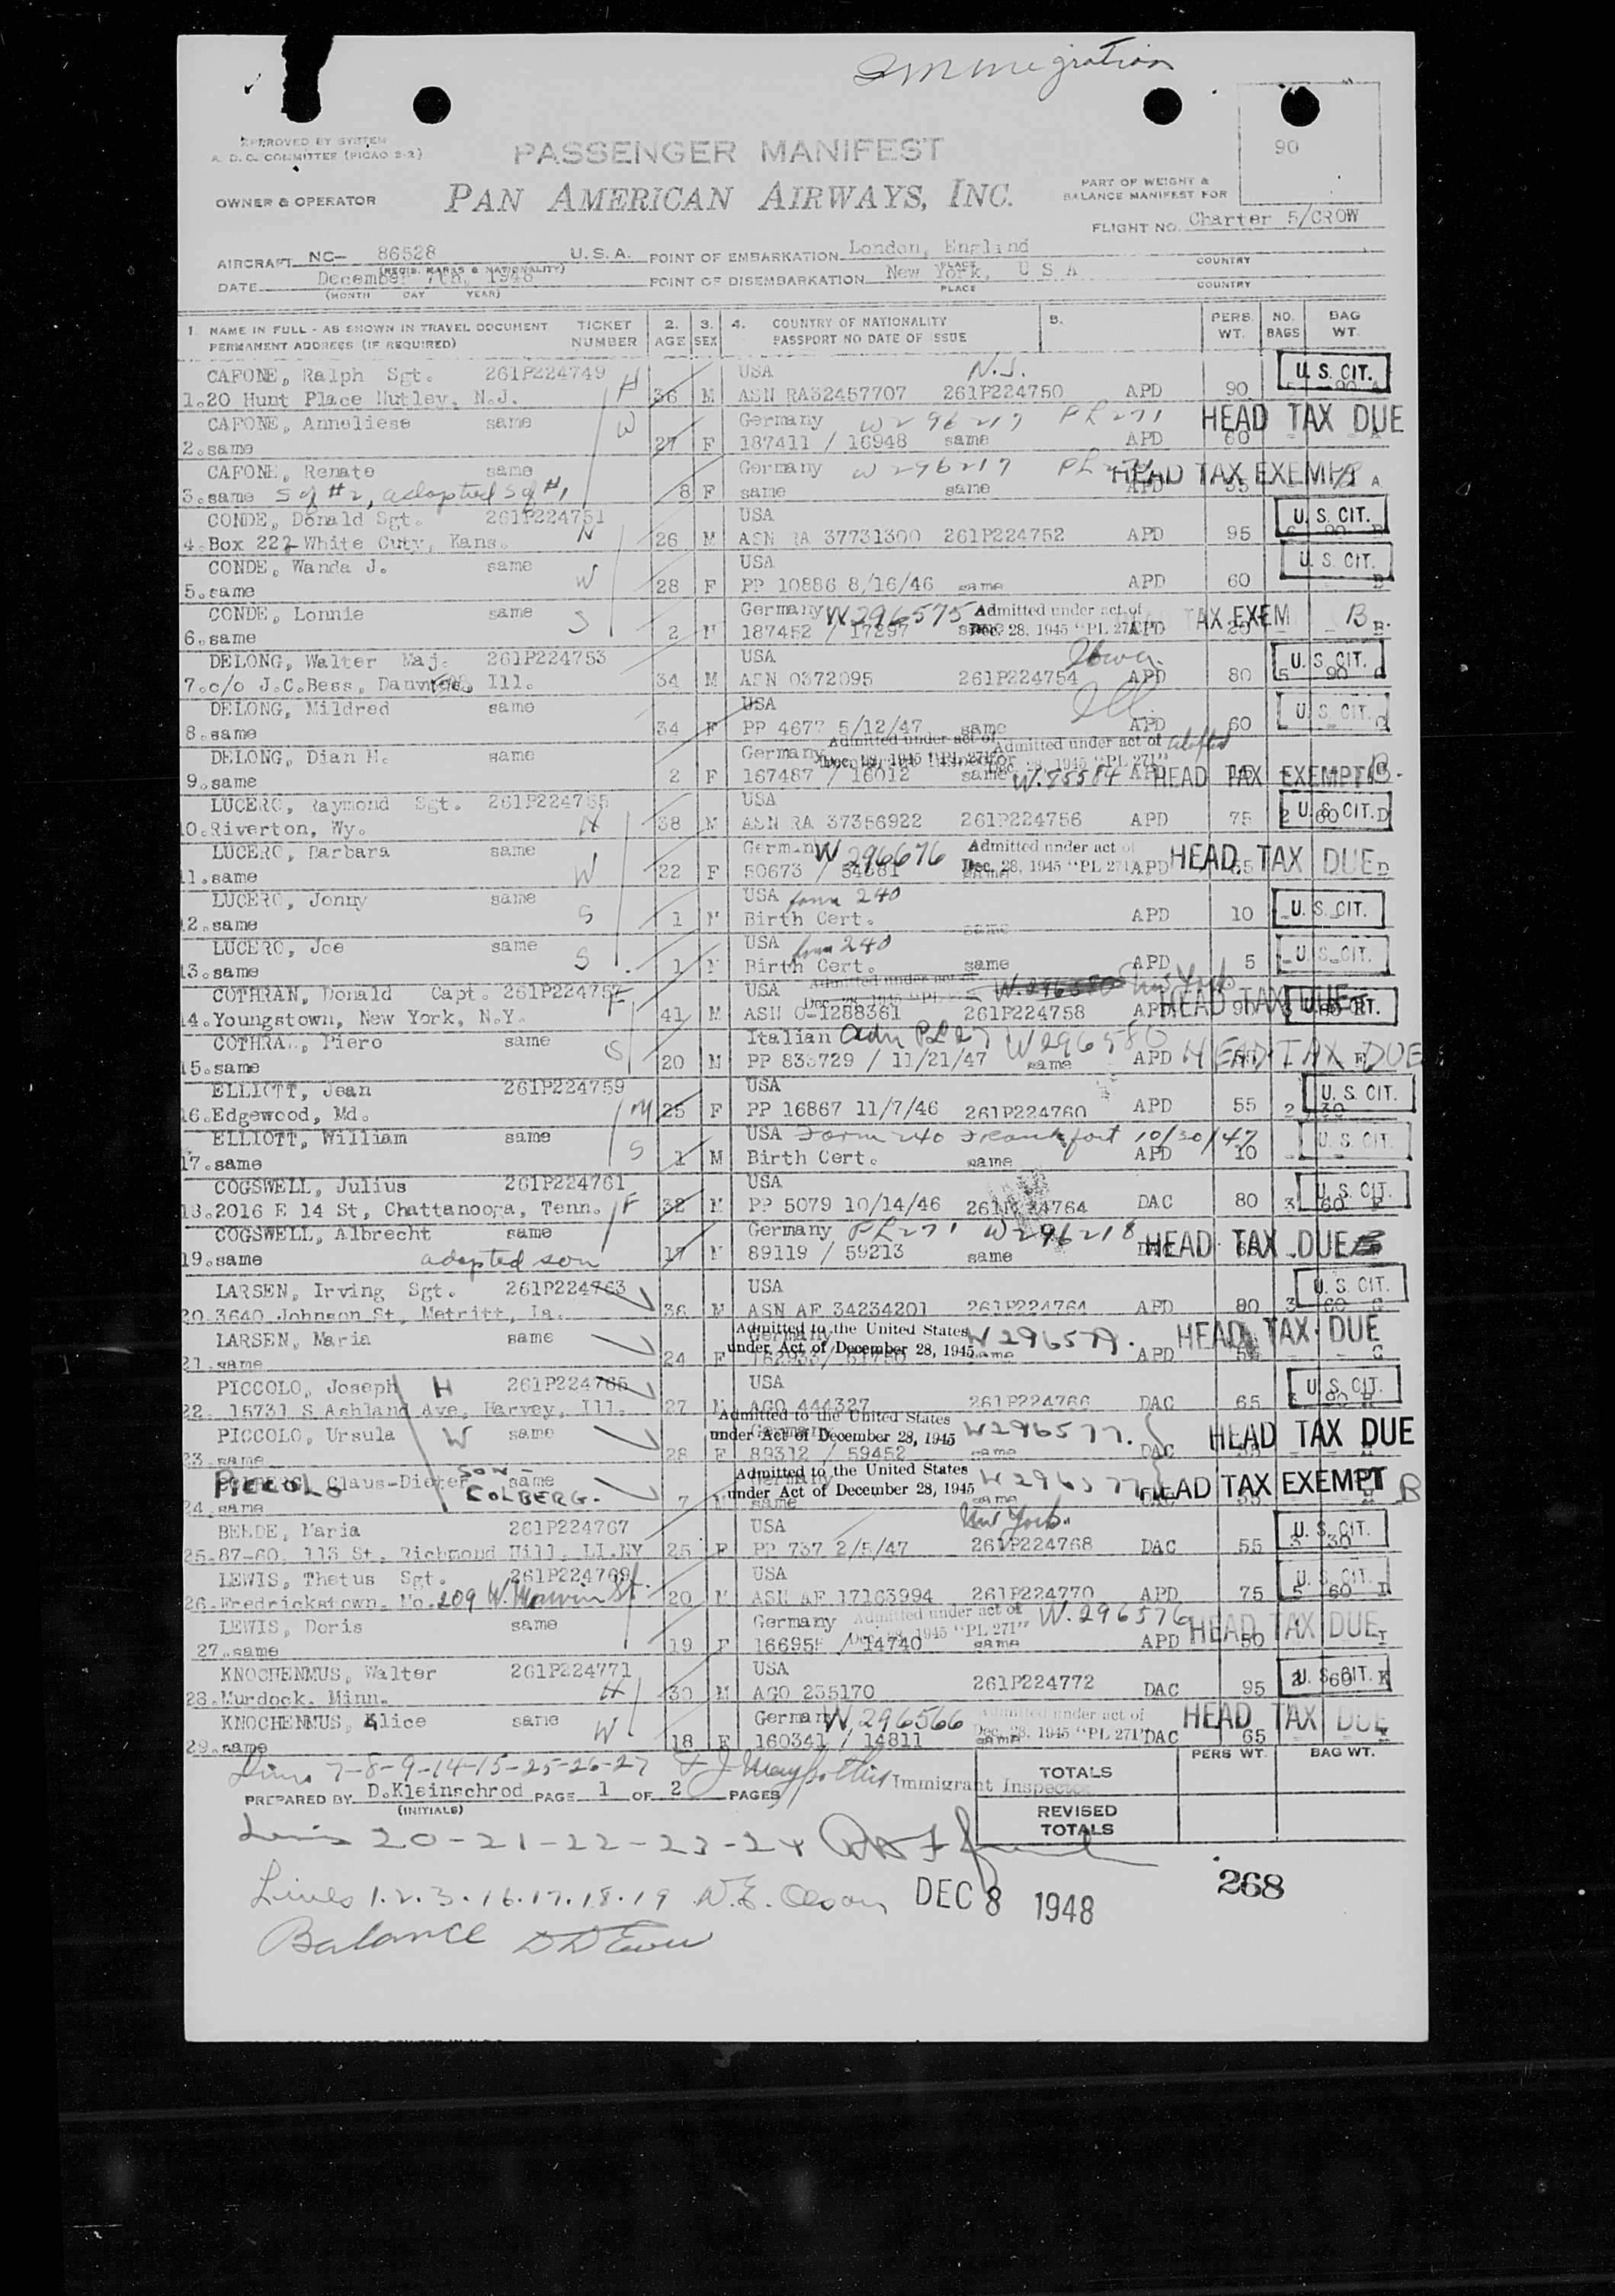 Immigration
APPROVED BY SYSTEM
A. D. C. COMMITTEE (PICAO 2-2)
PASSENGER MANIFEST
90
OWNER & OPERATOR
PAN AMERICAN AIRWAYS, INC.
PART OF WEIGHT &
BALANCE MANIFEST FOR
FLIGHT NO. Charter 5/CROW
AIRCRAFT NC- 86528 U.S.A. POINT OF EMBARKATION London, England
(REGIS. MARKS & NATIONALITY) PLACE COUNTRY
DATE December 7th, 1948 POINT OF DISEMBARKATION New York, U S A
(MONTH DAY YEAR) PLACE COUNTRY
1. NAME IN FULL - AS SHOWN IN TRAVEL DOCUMENT TICKET 2. 3. 4. COUNTRY OF NATIONALITY 5. PERS. NO. BAG
PERMANENT ADDRESS (IF REQUIRED) NUMBER AGE SEX PASSPORT NO DATE OF ISSUE WT. BAGS WT.
CAFONE, Ralph Sgt. 261P224749 USA N.J. U. S. CIT.
1.20 Hunt Place Nutley, N.J. H 36 M ASN RA32457707 261P224750 APD 90 A
CAFONE, Anneliese same W Germany W296217 PL271 HEAD TAX DUE
2.same 27 F 187411 / 16948 same APD 60 A
CAFONE, Renate same Germany W296217 HEAD TAX EXEMPT B
3.same S of #2, adopted S of #1 8 F same same APD 55 A
CONDE, Donald Sgt. 261P224751 USA U. S. CIT.
4.Box 222 White Cuty, Kans. 26 M ASN RA 37731300 261P224752 APD 95 6 90 B
CONDE, Wanda J. same W USA U. S. CIT.
5.same 28 F PP 10886 8/16/46 same APD 60 B
CONDE, Lonnie same S Germany W296575 Admitted under act of TAX EXEM B
6.same 2 M 187452 / 17297 Dec. 28, 1945 "PL 271" APD B
DELONG, Walter Maj. 261P224753 USA U. S. CIT.
7.c/o J.C.Bess, Ill. 34 M ASN 0372095 261P224754 APD 80 5 90 C
DELONG, Mildred same USA Ill U. S. CIT.
8.same 34 F PP 4677 5/12/47 same APD 60 C
DELONG, Dian M. same Germany Admitted under act of Admitted under act of adopted
9.same 2 F 167487 / 16012 same W.85584 HEAD TAX EXEMPT B.
LUCERO, Raymond Sgt. 261P224755 USA U. S. CIT.
10.Riverton, Wy. H 38 M ASN RA 37356922 261P224756 APD 75 2 60 D
LUCERO, Barbara same Germany W296676 Admitted under act of HEAD TAX DUE
11.same W 22 F 50673 / 54681 Dec. 28, 1945 "PL 271" APD D
LUCERO, Jonny same USA form 240 U. S. CIT.
12.same S 1 M Birth Cert. same APD 10
LUCERO, Joe same USA form 240 U. S. CIT.
13.same S 1 M Birth Cert. same APD 5
COTHRAN, Donald Capt. 261P224757 F USA New York HEAD TAX DUE
14.Youngstown, New York, N.Y. 41 M ASN O-1288361 261P224758 APD 90
COTHRAN, Piero same S Italian Adm PL27 W296580 HEAD TAX DUE
15.same 20 M PP 833729 / 11/21/47 same APD
ELLIOTT, Jean 261P224759 USA U. S. CIT.
16.Edgewood, Md. M 25 F PP 16867 11/7/46 261P224760 APD 55 2 30
ELLIOTT, William same USA Form 240 Frankfort 10/30/47 U. S. CIT.
17.same S 1 M Birth Cert. same APD 10
COGSWELL, Julius 261P224761 USA U. S. CIT.
18.2016 E 14 St, Chattanooga, Tenn. F 32 M PP 5079 10/14/46 DAC 80 3 60 F
COGSWELL, Albrecht same Germany PL271 W296218 HEAD TAX DUE
19.same adopted son 17 M 89119 / 59213 same
LARSEN, Irving Sgt. 261P224763 USA U. S. CIT.
20.3640 Johnson St, Metritt, La. 36 M ASN AF 34234201 261P224764 APD 80 3 60 G
LARSEN, Maria same Admitted to the United States W296579. HEAD TAX DUE
21.same 24 F under Act of December 28, 1945 same APD G
PICCOLO, Joseph H 261P224765 USA U. S. CIT.
22. 15731 S Ashland Ave, Harvey, Ill. 27 M AGO 444327 261P224766 DAC 65
PICCOLO, Ursula W same Admitted to the United States W296577. HEAD TAX DUE
23.same 28 F under Act of December 28, 1945 89312 / 59452 same DAC
PICCOLO Claus-Dieter SON- COLBERG. same Admitted to the United States HEAD TAX EXEMPT B
24.same 7 M under Act of December 28, 1945 same same
Maria 261P224767 USA New York. U. S. CIT.
25.87-60, 113 St, Richmond Hill, LI.NY 25 F PP 737 2/5/47 261P224768 DAC 55 3 30
LEWIS, Thetus Sgt. 261P224769 USA U. S. CIT.
26.Fredrickstown, Mo. 209 W. Marvin St. 20 M ASN AF 17163994 261P224770 APD 75 5 60 I
LEWIS, Doris same Germany Admitted under act of W.296576 HEAD TAX DUE
27.same 19 F / 14740 Dec. 28, 1945 "PL 271" same APD 50 I
KNOCHENMUS, Walter 261P224771 USA U. S. CIT.
28.Murdock, Minn. H 30 M AGO 235170 261P224772 DAC 95 2 60 K
KNOCHENMUS, Alice same W Germany W.296566 Admitted under act of HEAD TAX DUE
29.same 18 F 160341 / 14811 Dec. 28, 1945 "PL 271" DAC 65
Lines 7-8-9-14-15-25-26-27 Immigrant Inspector
PERS WT. BAG WT.
TOTALS
PREPARED BY D.Kleinschrod PAGE 1 OF 2 PAGES
(INITIALS)
REVISED
TOTALS
Lines 20-21-22-23-24
Lines 1.2.3.16.17.18.19 W.E. Olson DEC 8 1948
268
Balance